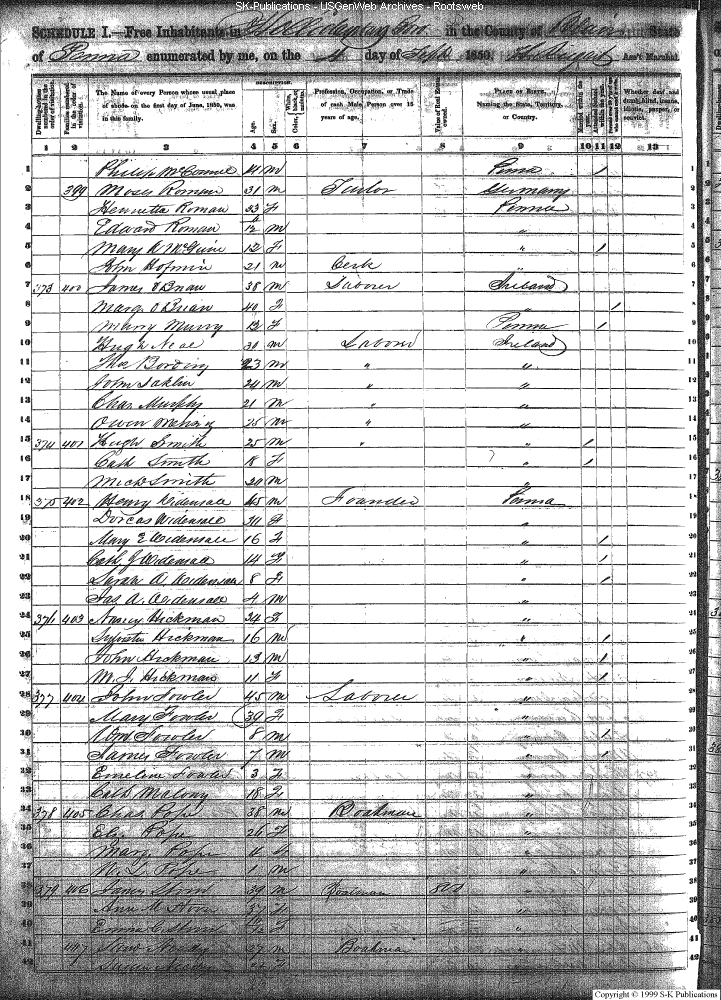 SK-Publications - USGenWeb Archives - Rootsweb
SCHEDULE I.—Free Inhabitants in Hollidaysburg Boro in the County of Blair State
of Penna enumerated by me, on the 4 day of Sept 1850. Ass't Marshal.
Dwelling-houses numbered in the order of visitation. Families numbered in the order of visitation. The Name of every Person whose usual place of abode on the first day of June, 1850, was in this family. DESCRIPTION. Age. Sex. Color, White, black, or mulatto. Profession, Occupation, or Trade of each Male Person over 15 years of age. Value of Real Estate owned. PLACE OF BIRTH, Naming the State, Territory, or Country. Married within the year. Attended School within the year. Whether deaf and dumb, blind, insane, idiotic, pauper, or convict.
1 2 3 4 5 6 7 8 9 10 11 12 13
1 Philip McConnel 41 m Penna / 1
2 399 Moses Roman 31 m Germany 2
3 Henrietta Roman 33 F Penna 3
4 Edward Roman 12 m " 4
5 Mary A McGuire 12 F " / 5
6 Hofmin 21 m Clerk 6
7 373 400 James OBrian 38 m Laborer Ireland 7
8 Marg OBrian 40 F " / 8
9 Murry 12 F Penna / 9
10 Hugh Neal 30 m Laborer Ireland 10
11 Thos Bording 23 m " " 11
12 John 24 m " " 12
13 Chas Murphy 21 m " " 13
14 Owen 25 m " " 14
15 374 401 Hugh Smith 25 m " " / 15
16 Cath Smith 18 F " / 16
17 Mick Smith 20 m 17
18 375 402 Henry Widensall 45 m Founder Penna 18
19 Dorcas Widensall F " 19
20 Mary E Widensall 16 F " / 20
21 Cath J Widensall 14 F " / 21
22 Sarah A Widensall 8 F " / 22
23 Jas A. Widensall 4 m " 23
24 376 403 Nancy Hickman 34 F " 24
25 Sylvester Hickman 16 m " / 25
26 John Hickman 13 m " / 26
27 M. J. Hickman 11 F " / 27
28 377 404 John Fowler 45 m Laborer " 28
29 Mary Fowler 39 F " 29
30 Wm Fowler 8 m " / 30
31 James Fowler 7 m " / 31
32 Emeline Fowler 3 F " 32
33 Cath Malony 18 F " 33
34 378 405 Chas Pope 38 m Boatman " 34
35 Pope 26 F " 35
36 Mary Pope F " 36
37 Pope 1 m " 37
38 379 406 39 m Boatman " 38
39 Ann M 37 F " 39
40 Emma F " 40
41 407 37 m Boatman " 41
42 F 42
Copyright © 1999 S-K Publications